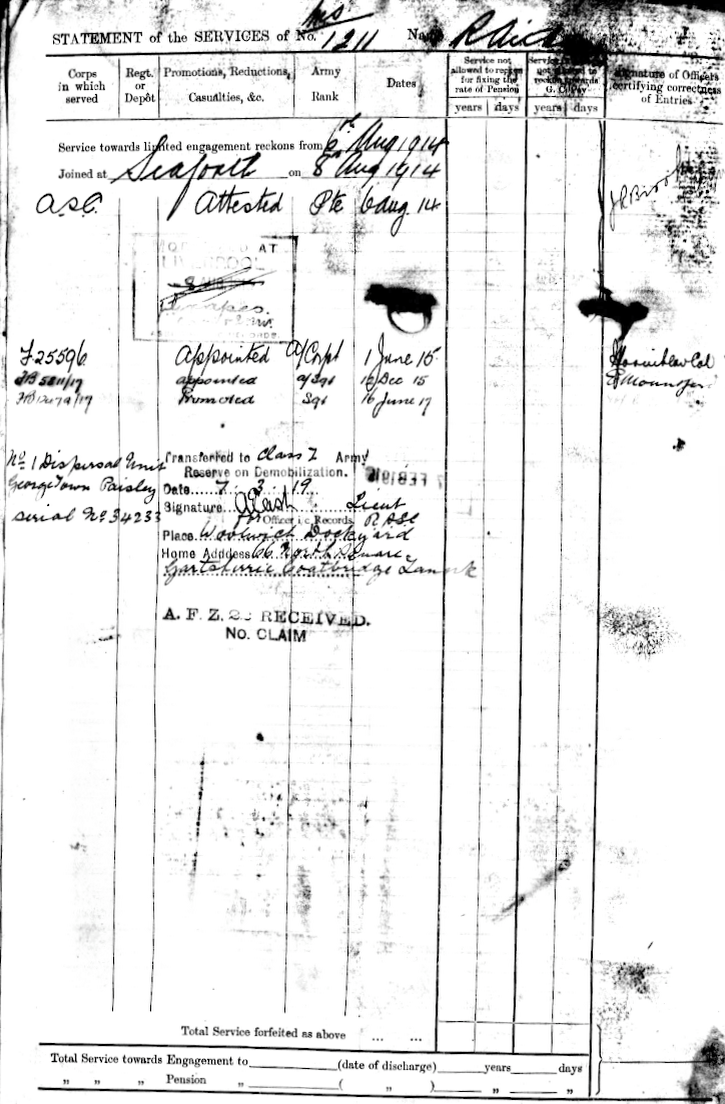 STATEMENT of the SERVICES of No. MS/1211 Name R Aird
Corps in which served
Regt. or Depôt
Promotions, Reductions, Casualties, &c.
Army Rank
Dates
Service not allowed to reckon for fixing the rate of Pension
years days
Service not allowed to reckon towards G. C. Pay
years days
Signature of Officers certifying correctness of Entries
Service towards limited engagement reckons from 6th Aug 1914
Joined at Seaforth on 8th Aug 1914
A.S.C. Attested Pte 6 Aug 14
AT
LIVERPOOL
F25596 Appointed A/Corpl 1 June 15
appointed a/Sgt 12 Dec 15
Promoted Sgt 16 June 17
No 1 Dispersal Unit
Georgetown Paisley
Serial No 34233
Transferred to Class Z Army
Reserve on Demobilization.
Date 7 3 19
Signature Lieut
for Officer i/c Records, RASC
Place Woolwich Dockyard
Home Address 66 North Square
Gartsherrie Coatbridge Lanark
A. F. Z. RECEIVED.
No. CLAIM
Total Service forfeited as above ... ...
Total Service towards Engagement to (date of discharge) years days
„ „ „ Pension „ ( „ ) „ „